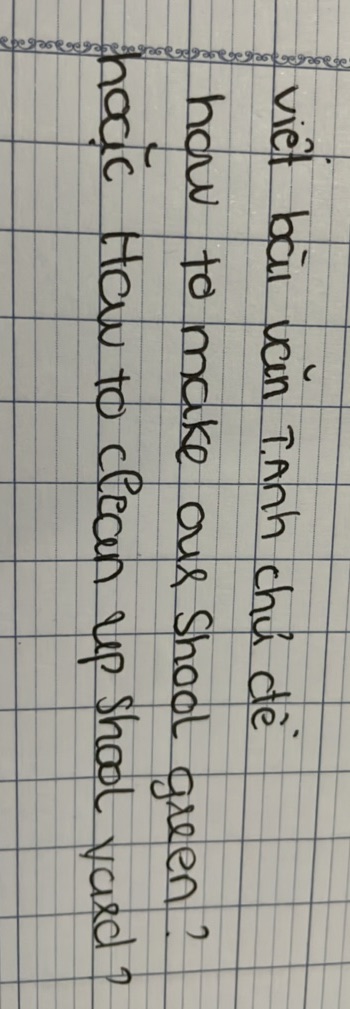 viết bài văn T.Anh chủ đề
how to make our Shool green?
hoặc How to clean up Shool yard?